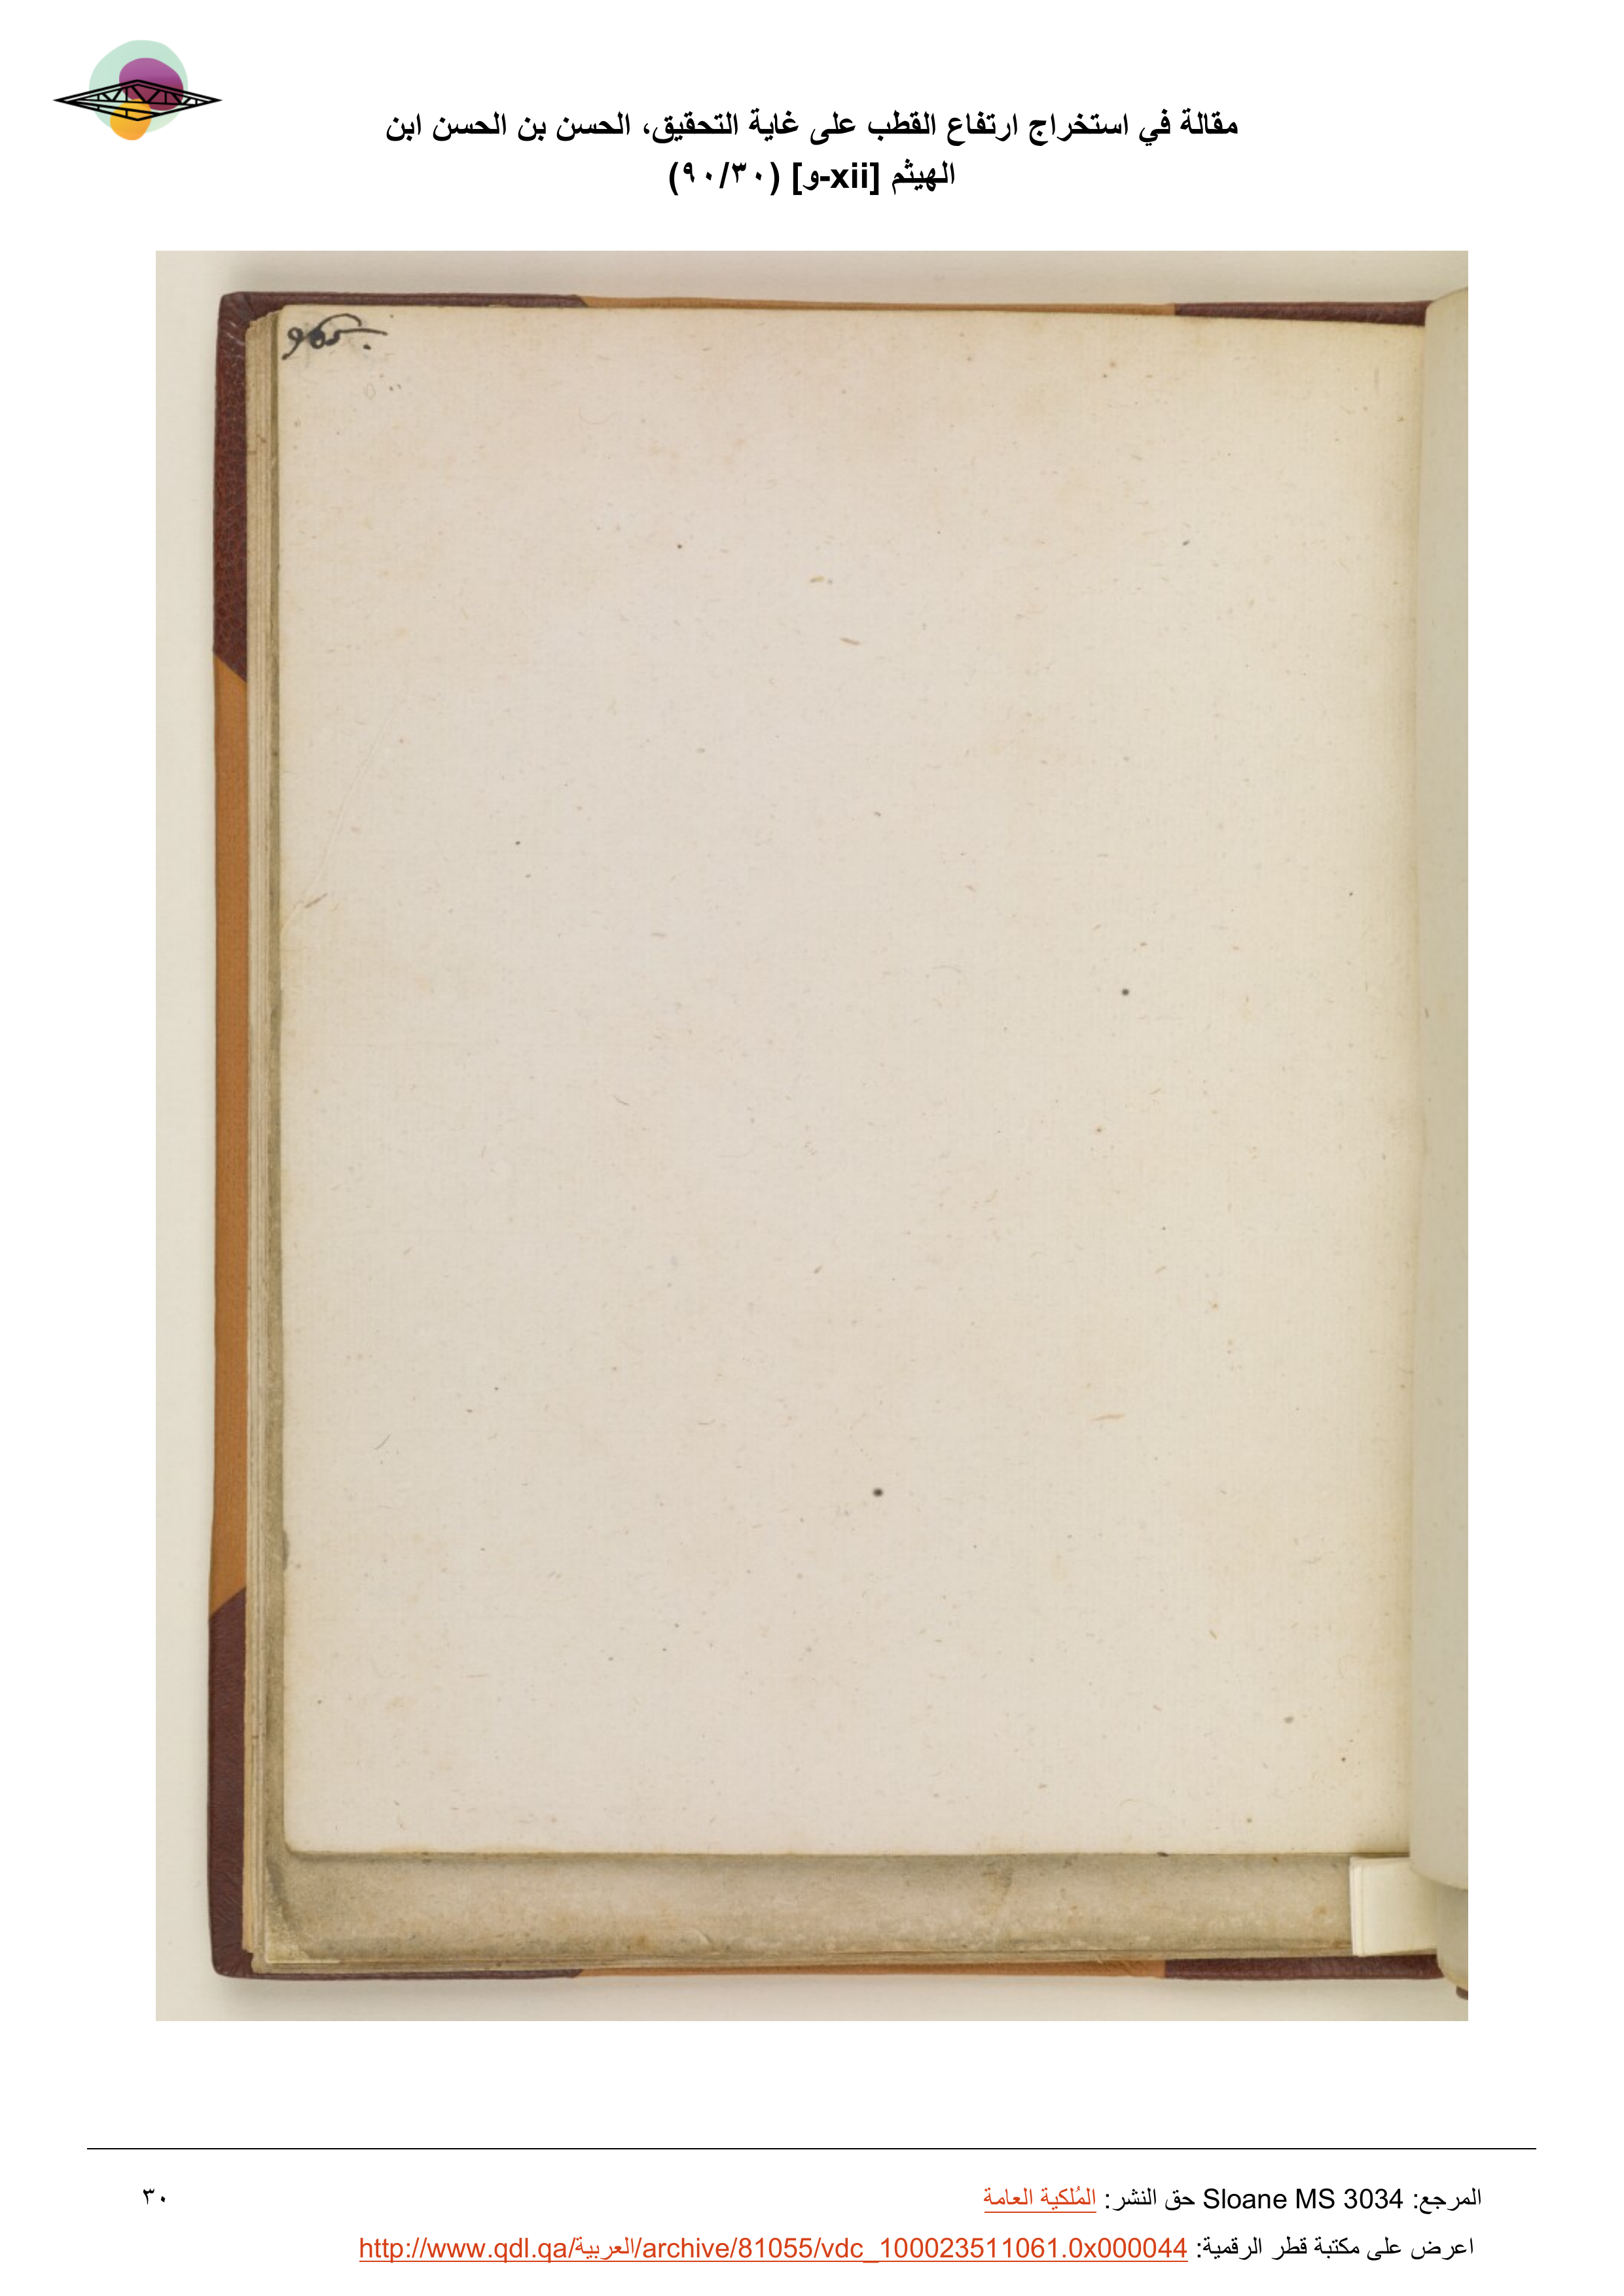 مقالة في استخراج ارتفاع القطب على غاية التحقيق، الحسن بن الحسن ابن
الهيثم [xii-و] (٩٠/٣٠)
المرجع: Sloane MS 3034 حق النشر: المُلكية العامة
٣٠
اعرض على مكتبة قطر الرقمية: http://www.qdl.qa/العربية/archive/81055/vdc_100023511061.0x000044